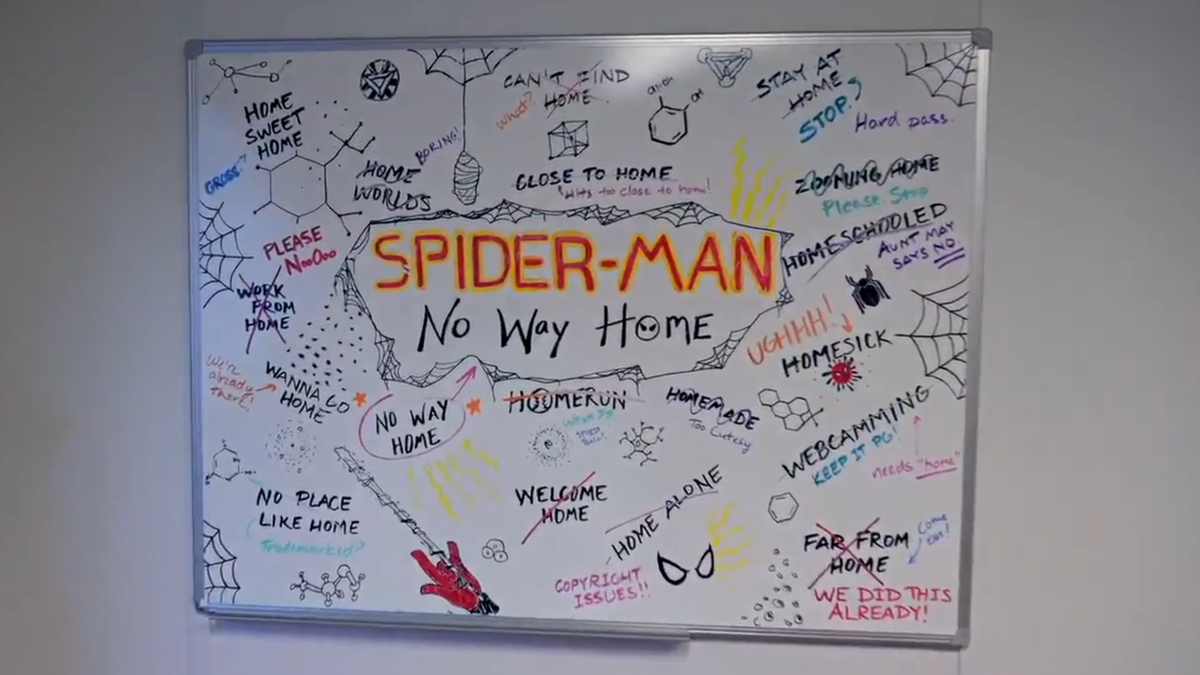 HOME
SWEET
HOME
GROSS
CAN'T FIND
HOME
What?
STAY AT
HOME
STOP.
Hard pass.
BORING!
HOME
WORLDS
CLOSE TO HOME
Hits too close to home!
ZOOMING HOME
Please Stop
HOMESCHOOLED
AUNT MAY
SAYS NO
PLEASE
NooOoo
WORK
FROM
HOME
SPIDER-MAN
No Way Home
UGHHH!
HOMESICK
We're
already
there!
WANNA GO
HOME
NO WAY
HOME
HOOMERUN
What??
HOMEMADE
Too Cutesy
WEBCAMMING
KEEP IT PG!
needs "home"
NO PLACE
LIKE HOME
Trademarked?
WELCOME
HOME
HOME ALONE
COPYRIGHT
ISSUES!!
FAR FROM
HOME
Come
on!
WE DID THIS
ALREADY!